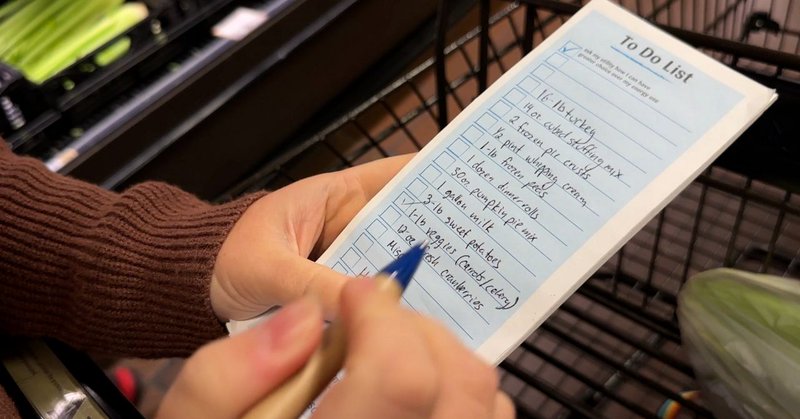 To Do List
ask my utility how I can have
greater choice over my energy use
16-lb turkey
14 oz cubed stuffing mix
2 frozen pie crusts
1/2 pint whipping cream
1-lb frozen peas
1 dozen dinner rolls
30 oz pumpkin pie mix
1 gallon milk
3-lb sweet potatoes
1-lb veggies (carrots/celery)
12 oz fresh cranberries